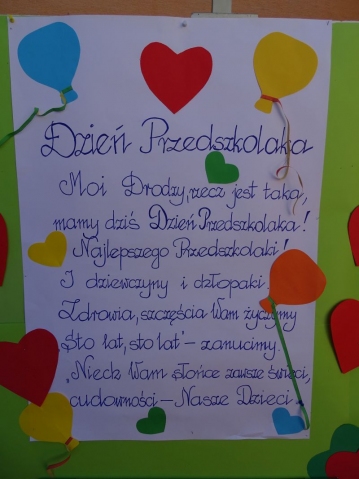 Dzień Przedszkolaka
Moi Drodzy, rzecz jest taka,
mamy dziś Dzień Przedszkolaka!
Najlepszego Przedszkolaki!
I dziewczyny i chłopaki.
Zdrowia, szczęścia Wam życzymy
„Sto lat, sto lat" – zanucimy.
„Niech Wam słońce zawsze świeci,
cudowności – Nasze Dzieci.